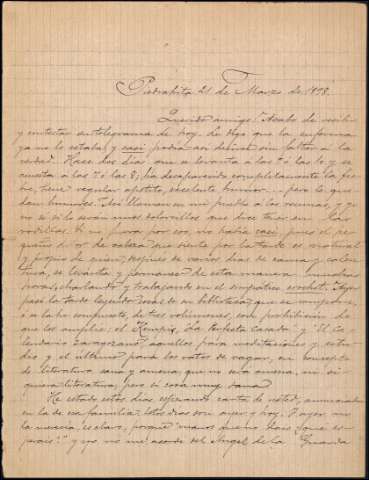 Piedrahita 21 de Marzo de 1898.
Querido amigo: Acabo de recibir
y contestar su telegrama de hoy. Le digo que la enferma
ya no lo estaba, y casi podía así decirse sin faltar á la
verdad. Hace dos días que se levanta á las 9 ó á las 10 y se
acuesta á las 7 ó á las 8; ha desaparecido completamente la fie-
bre, tiene regular apetito, excelente humor... pero le que-
dan humores. Así llaman en mi pueblo á las reumas, y yo
no sé si lo serán unos dolorcillos que dice tener en las
rodillas. Si no fuera por eso, no había casi, pues el pe-
queño dolor de cabeza que siente por la tarde es natural
y propio de quien, después de varios días de cama y calen-
tura, se levanta y permanece de esta manera muchas
horas, charlando y trabajando en el simpático crochet. Ayer
pasé la tarde leyendo
á la he compuesto, de tres volúmenes, con prohibición de
que los amplíe: el Kempis, "La Perfecta casada" y "El Ca-
lendario zaragozano" aquellos para meditaciones y estu-
dio y el último para los ratos de vagar, en concepto
de literatura sana y amena que no será amena, ni si-
quiera literatura, pero sí cosa muy sana.
He estado estos días esperando carta de usted, anunciada
en la de esa familia. Estos días son ayer y hoy. Y ayer, no
la merecía, es claro, porque "manos que no dais ¿qué es-
peráis?" y yo no me acordé del Angel de la Guarda